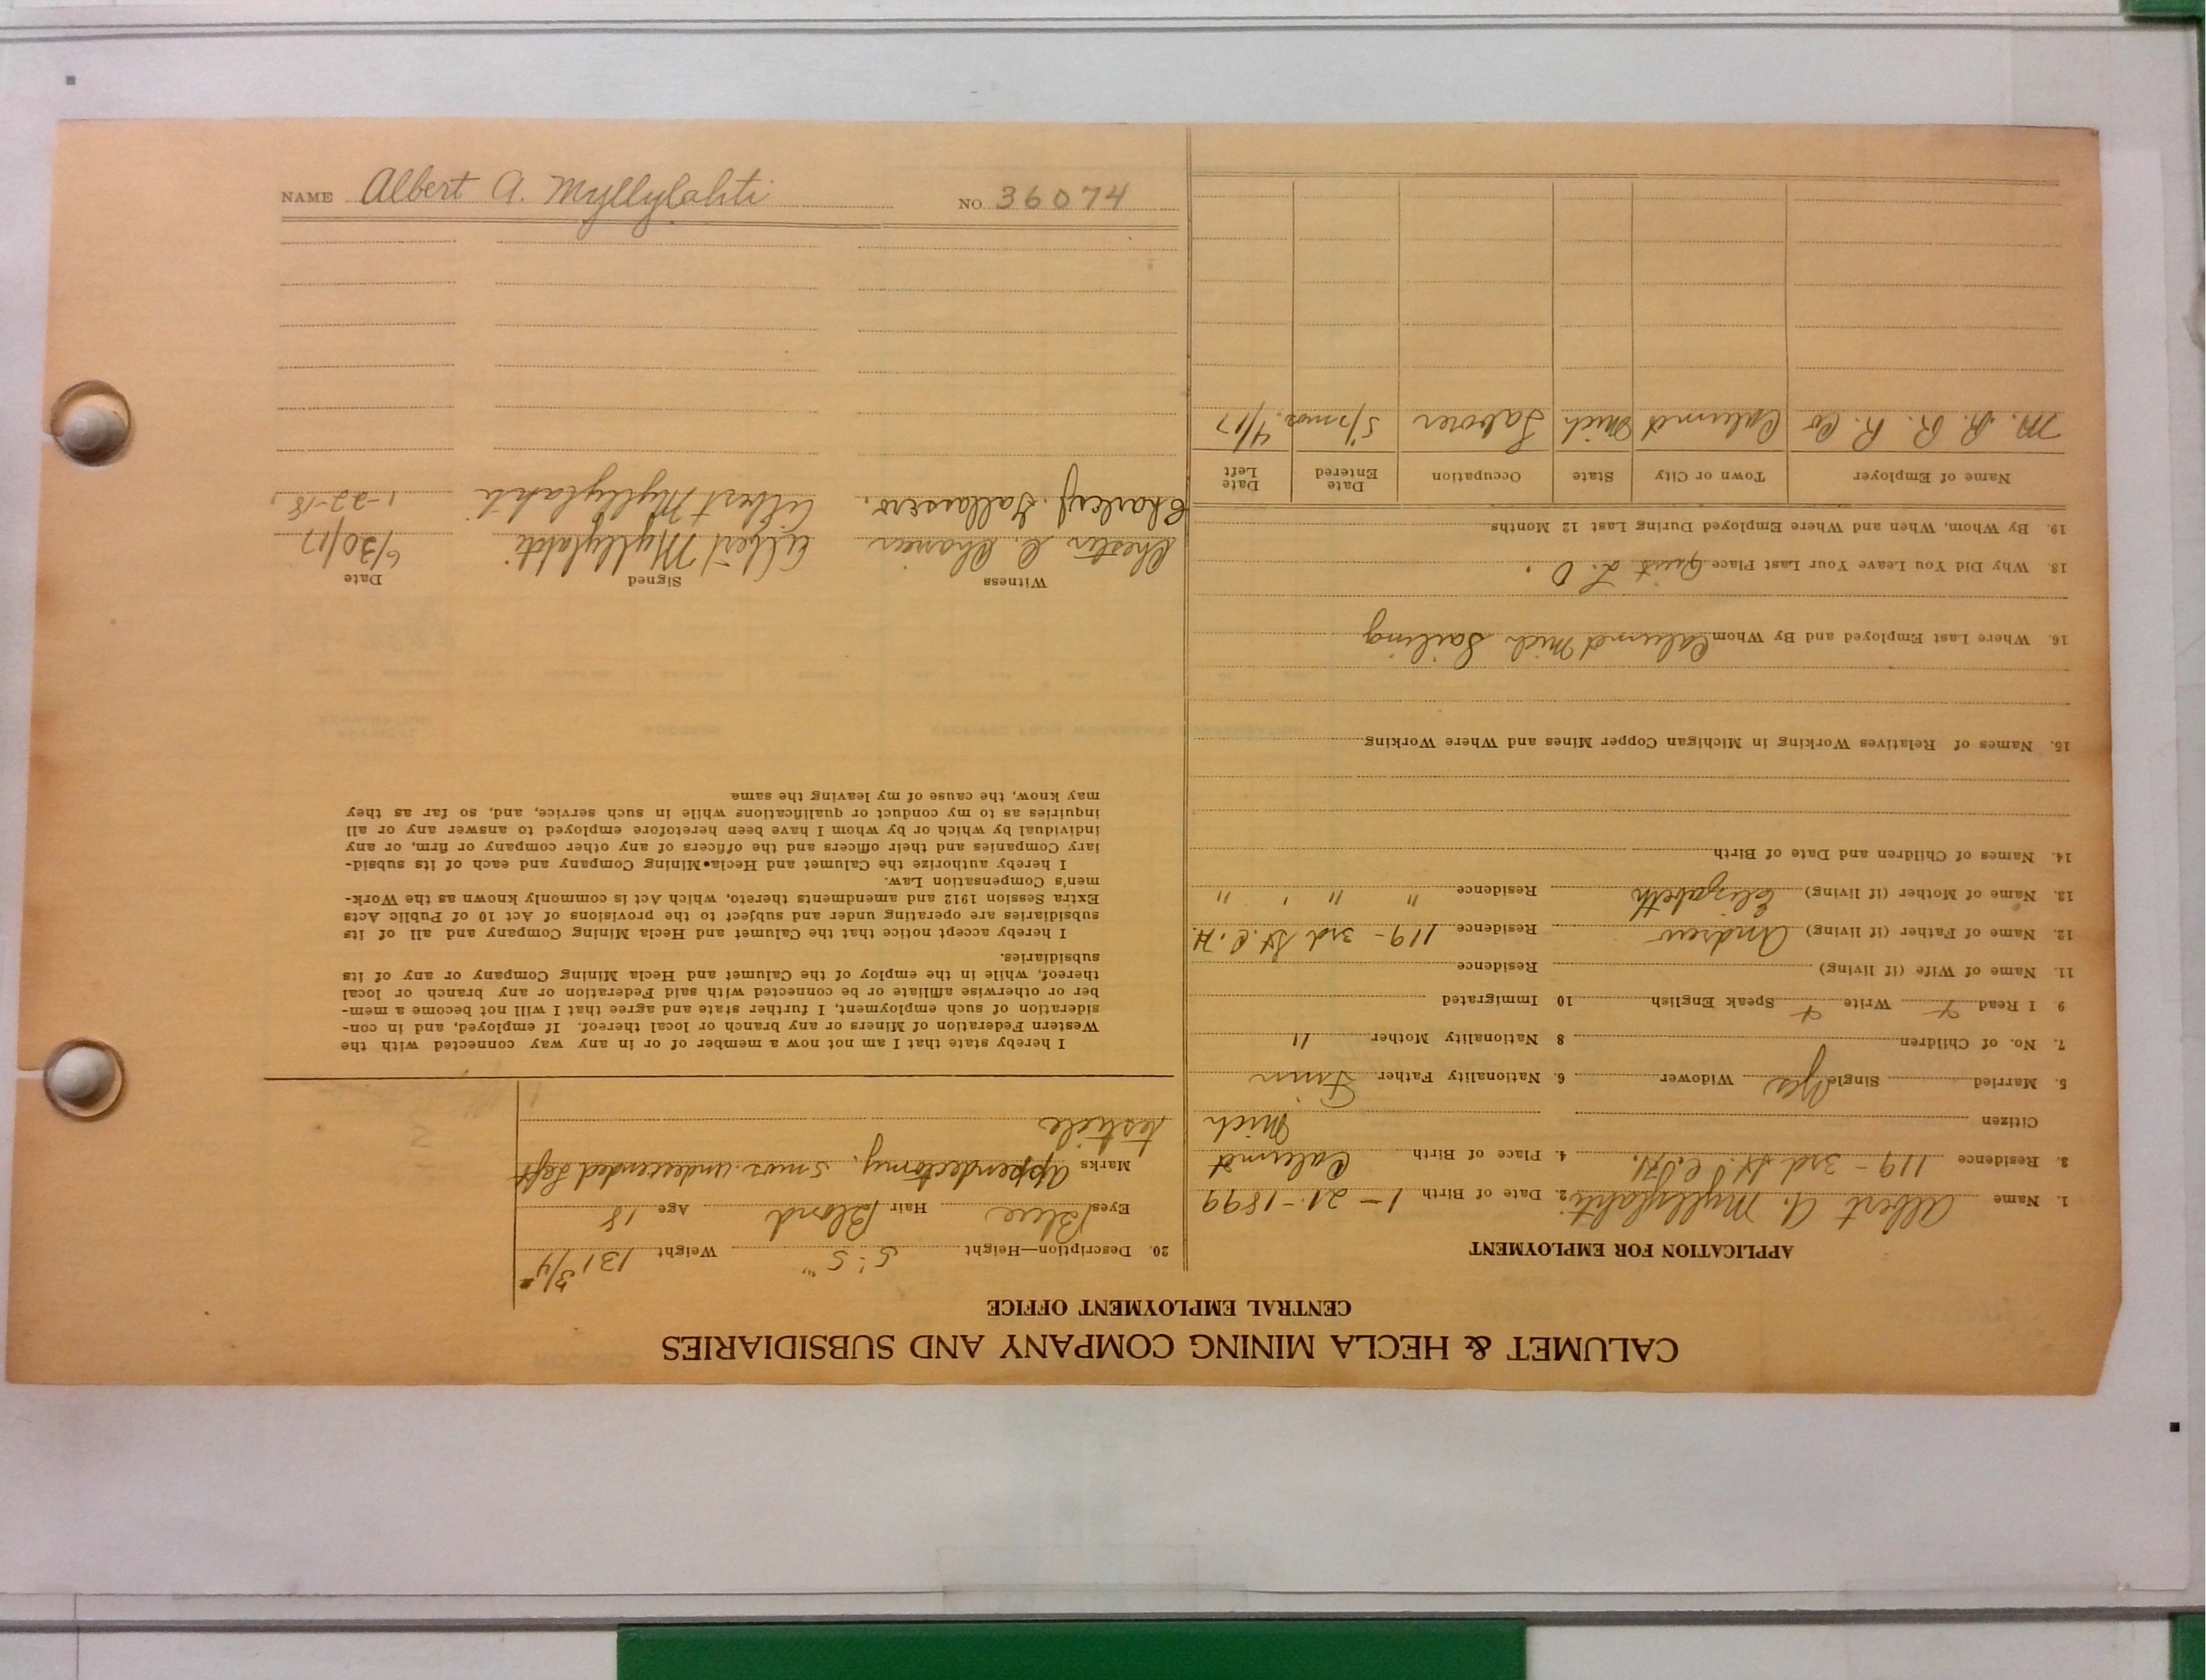 CALUMET & HECLA MINING COMPANY AND SUBSIDIARIES
CENTRAL EMPLOYMENT OFFICE
APPLICATION FOR EMPLOYMENT
1. Name Albert A. Myllylahti 2. Date of Birth 1-21-1899
3. Residence 119-3rd St. 4. Place of Birth Calumet
Citizen Mich
5. Married Single Yes Widower 6. Nationality Father Finn
7. No. of Children 8 Nationality Mother "
9 I Read + Write + Speak English 10 Immigrated
11. Name of Wife (if living) Residence
12. Name of Father (if living) Andrew Residence 119-3rd St. C. H.
13. Name of Mother (if living) Elizabeth Residence " " " "
14. Names of Children and Date of Birth
15. Names of Relatives Working in Michigan Copper Mines and Where Working
16. Where Last Employed and By Whom Calumet Mich Sailing
18. Why Did You Leave Your Last Place Quit L. O.
19. By Whom, When and Where Employed During Last 12 Months
Name of Employer Town or City State Occupation Date Entered Date Left
M. R. R. R. Co Calumet Mich Laborer 5 1/2 mos. 4/17
20. Description—Height 5' 5" Weight 131 3/4 #
Eyes Blue Hair Blond Age 18
Marks Appendectomy, 5 mos. undecended Left
testicle
I hereby state that I am not now a member of or in any way connected with the
Western Federation of Miners or any branch or local thereof. If employed, and in con-
sideration of such employment, I further state and agree that I will not become a mem-
ber or otherwise affiliate or be connected with said Federation or any branch or local
thereof, while in the employ of the Calumet and Hecla Mining Company or any of its
subsidiaries.
I hereby accept notice that the Calumet and Hecla Mining Company and all of its
subsidiaries are operating under and subject to the provisions of Act 10 of Public Acts
Extra Session 1912 and amendments thereto, which Act is commonly known as the Work-
men's Compensation Law.
I hereby authorize the Calumet and Hecla Mining Company and each of its subsid-
iary Companies and their officers and the officers of any other company or firm, or any
individual by which or by whom I have been heretofore employed to answer any or all
inquiries as to my conduct or qualifications while in such service, and, so far as they
may know, the cause of my leaving the same
Witness Signed Date
Chester C. Albert Myllylahti 6/30/17
Albert Myllylahti 1-22-18,
NAME Albert A. Myllylahti NO. 36074